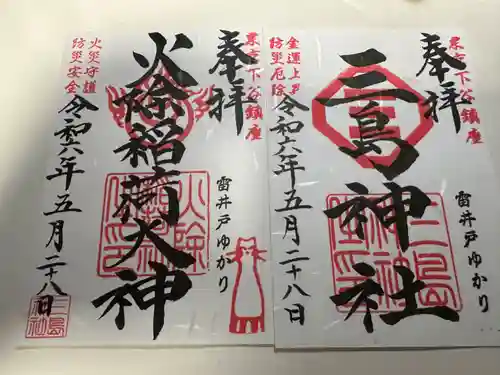 東京下谷鎮座
奉拝
雷井戸ゆかり
三島神社
金運上昇
防災厄除
令和六年五月二十八日
東京下谷鎮座
奉拝
雷井戸ゆかり
火除稲荷大神
火災守護
防災安全
令和六年五月二十八日
三島
神社